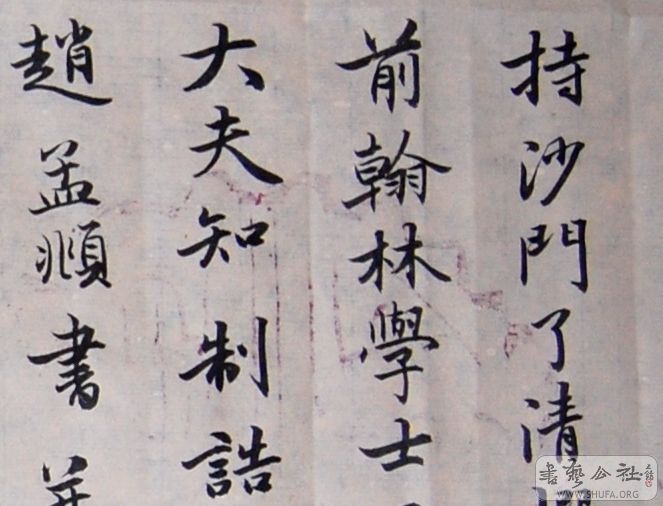 持沙門了清
前翰林學士
大夫知制誥
趙孟頫書并
書藝公社
WWW.SHUFA.ORG